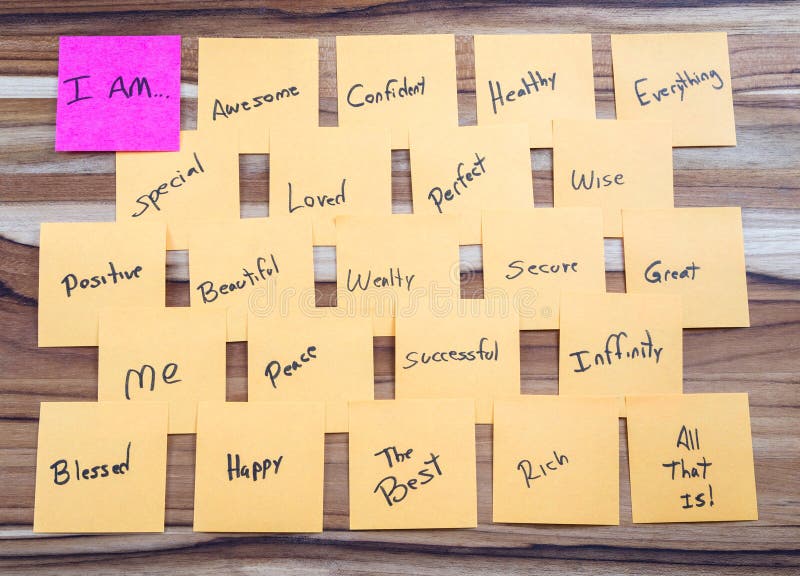 I AM...
Awesome
Confident
Healthy
Everything
Special
Loved
Perfect
Wise
Positive
Beautiful
Wealty
Secure
Great
Me
Peace
Successful
Inffinity
Blessed
Happy
The
Best
Rich
All
That
Is!
dreamstime